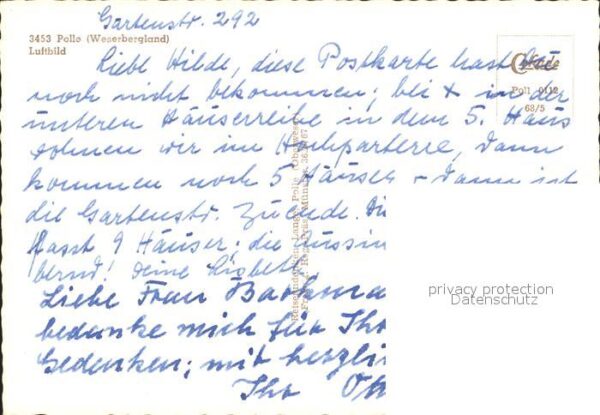 Gartenstr. 292
3453 Polle (Weserbergland)
Luftbild
Liebe Hilde, diese Postkarte hast Du
noch nicht bekommen; bei x in der
unteren Häuserreihe in dem 5. Haus
wohnen wir im Hochparterre, dann
kommen noch 5 Häuser - dann ist
die Gartenstr. Zuende. Du
hasst 9 Häuser; die
Deine Lisbeth
Liebe Frau
bedanke mich für Ihr
Gedenken; mit herzli
Ihr
Poll 0112
68/5
privacy protection
Datenschutz